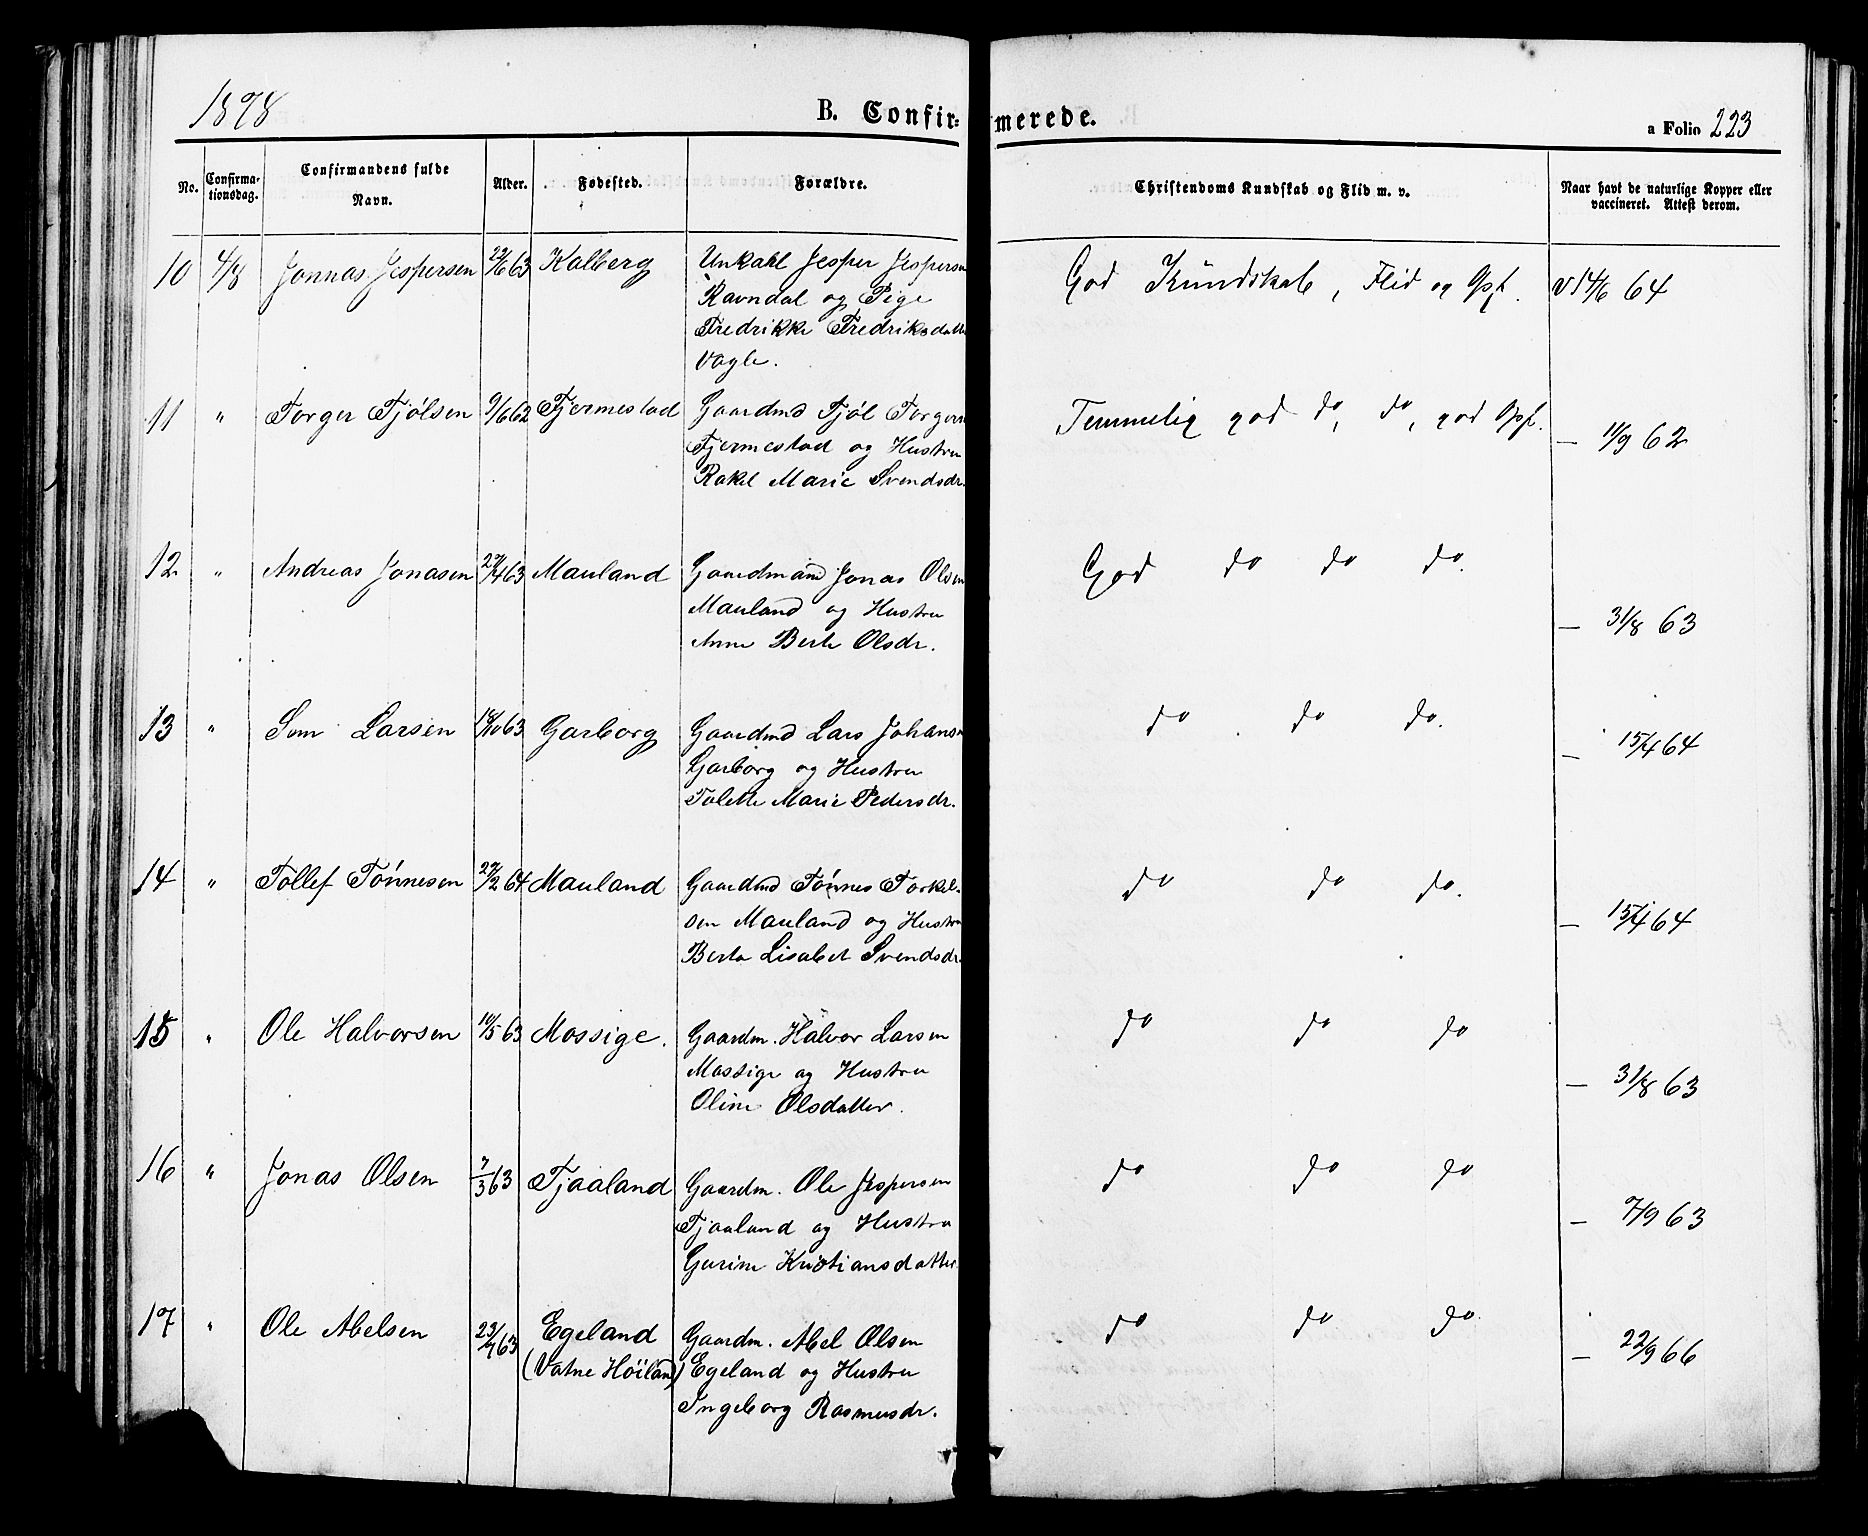 1878 B. Confirmerede. a Folio 223
No. Confirmationsdag. Confirmandens fulde Navn. Alder. Fødested. Forældre. Christendoms Kundskab og Flid m. v. Naar havt de naturlige Kopper eller vaccineret. Attest derom.
10 4/8 Jonnas Jespersen 22/6 63 Kalberg Unkarl Jesper Jespersen God Kundskab, Flid og Opf. v 14/6 64
Ravndal og Pige
Fredrikke Fredriksdatter
Vagle.
11 " Torger Tjölsen 9/6 62 Tjermestad Gaardmd Tjöl Torgers Temmelig god do, do, god Opf. — 11/9 62
Tjermestad og Hustru
Rakel Marie Svendsdr.
12 " Andreas Jonasen 27/4 63 Mauland Gaardmand Jonas Olsen God do do do. — 31/8 63
Mauland og Hustru
Anne Berte Olsdr.
13 " Som Larsen 18/10 63 Garborg Gaardmd Lars Johans do do do. — 15/4 64
Garborg og Hustru
Tolette Marie Pedersdr.
14 " Tollef Tönnesen 27/2 64 Mauland Gaardmd Tönnes Torkel- do do do. — 15/4 64
sen Mauland og Hustru
Berta Lisabet Svendsdr.
15 " Ole Halvorsen 10/5 63 Mossige. Gaardm. Halvor Larsen do do do — 31/8 63
Mossige og Hustru
Oline Olsdatter.
16 " Jonas Olsen 7/3 63 Tjaaland Gaardm. Ole Jespersen do do do — 7/9 63
Tjaaland og Hustru
Gurine Kristiansdatter.
17 " Ole Abelsen 23/7 63 Egeland Gaardm. Abel Olsen do do do. — 22/9 66
(Vatne Höiland) Egeland og Hustru
Ingeborg Rasmusdr.